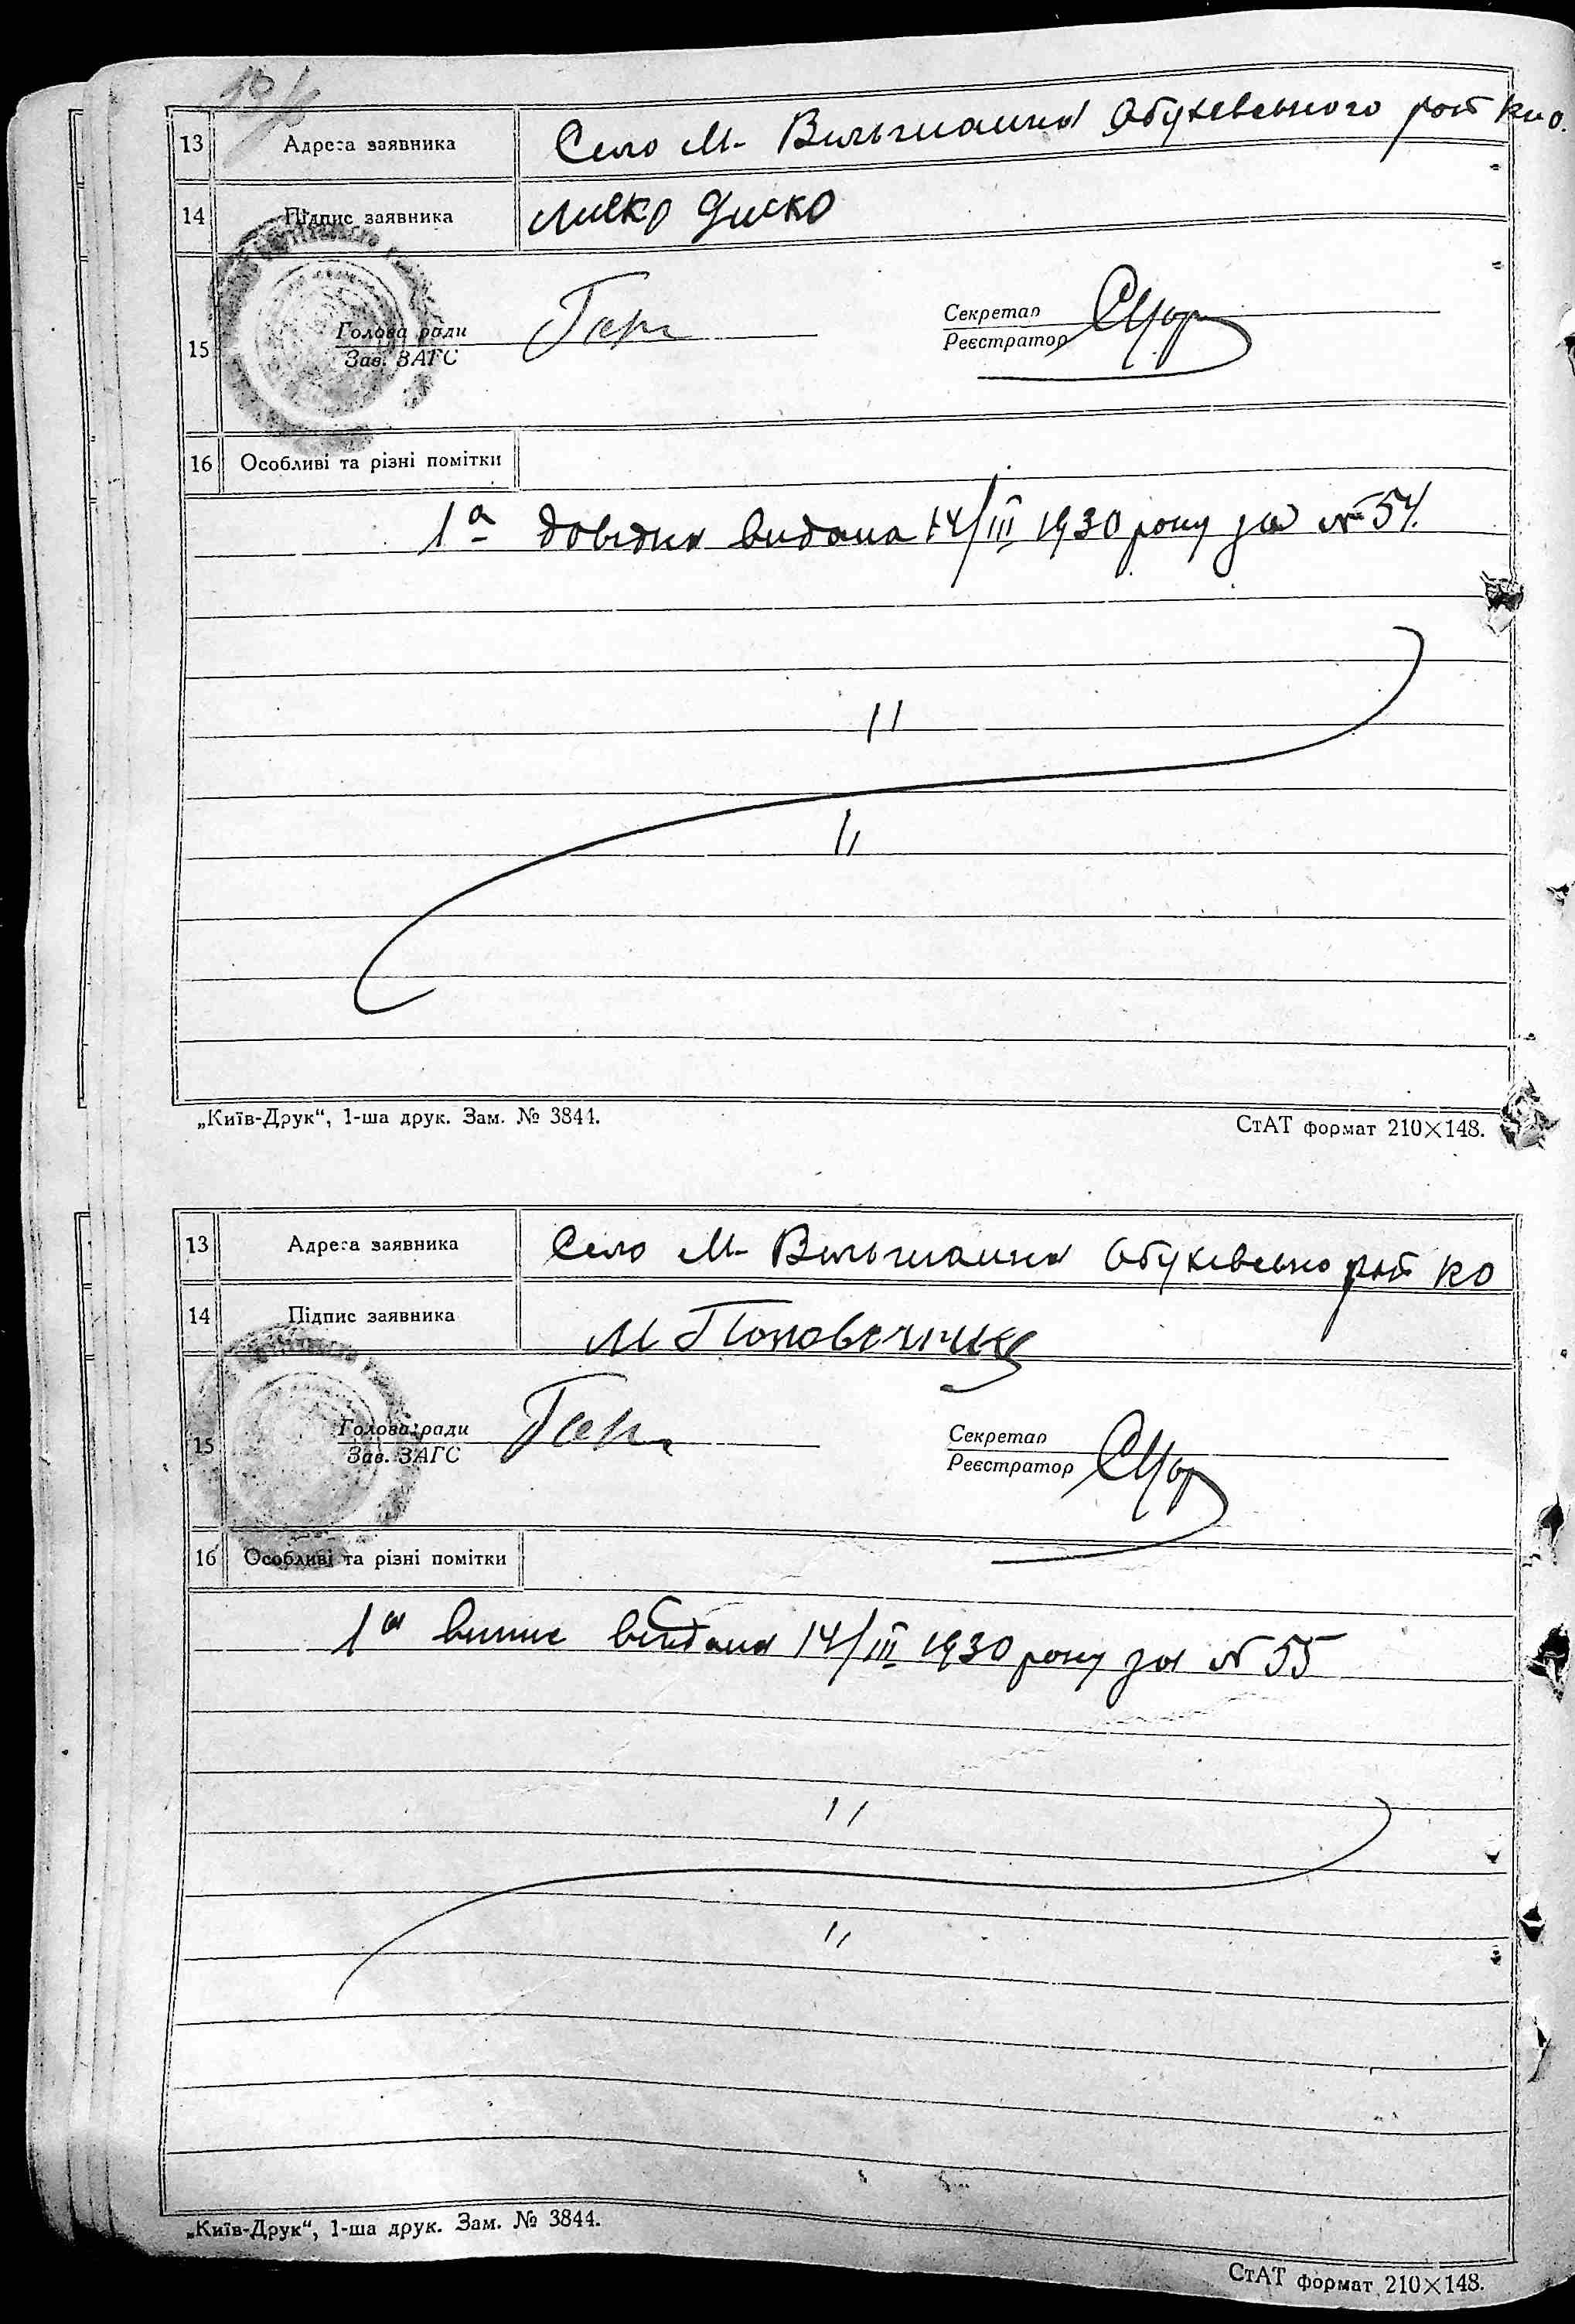 13 Адреса заявника Село М- Вильшанка Обухевського рай к-и о.
14 Підпис заявника
15 Голова ради Секретар
Зав. ЗАГС Реєстратор
16 Особливі та різні помітки
1а довідка видана 14/III 1930 року за № 54.
"
"
„Київ-Друк“, 1-ша друк. Зам. № 3844. СтАТ формат 210×148.
13 Адреса заявника Село М- Вильшанка Обухевсько рай ко
14 Підпис заявника М
15 Голова ради Секретар
Зав. ЗАГС Реєстратор
16 Особливі та різні помітки
1а випис видана 14/III 1930 року за № 55
"
"
„Київ-Друк“, 1-ша друк. Зам. № 3844.
СтАТ формат 210×148.